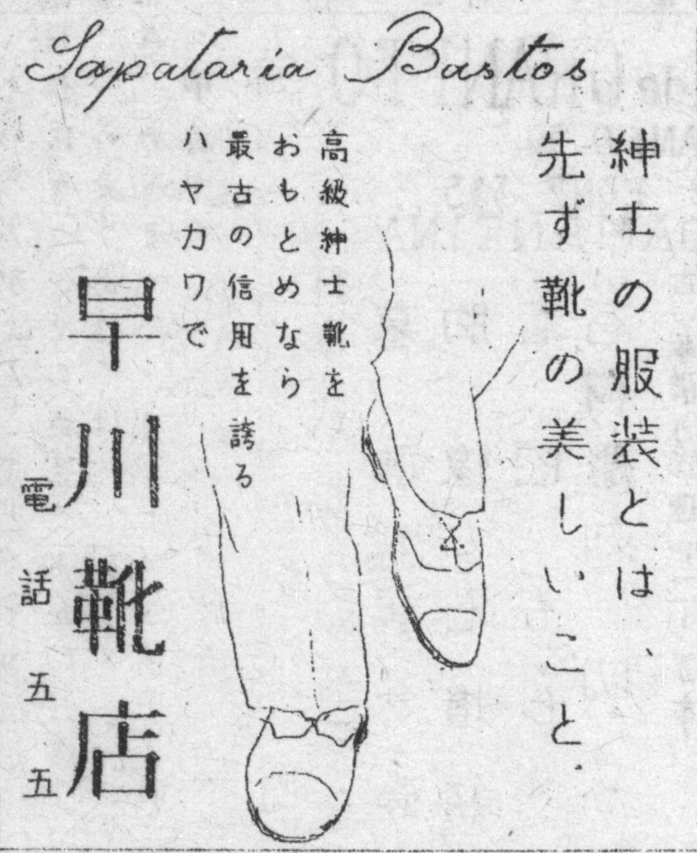 Sapataria Bastos
紳士の服装とは、
先ず靴の美しいこと.
高級紳士靴を
おもとめなら
最古の信用を誇る
ハヤカワで
早川靴店
電話五五